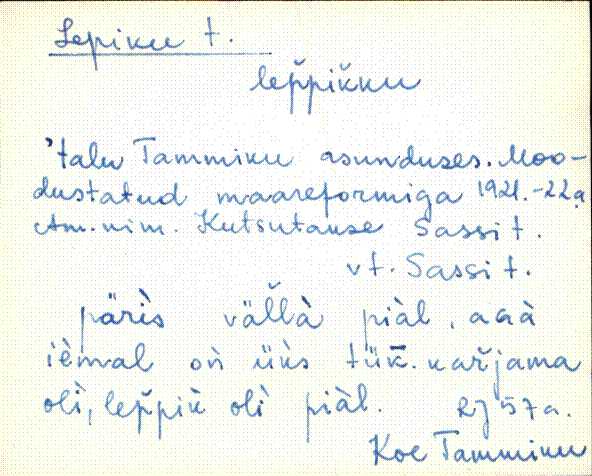 Lepiku t.
lep̆pik̆ku
'talu Tammiku asunduses. Moo-
dustatud maareformiga 1921.-22.a
Am. nim. Kutsutakse Sassi t.
vt. Sassi t.
pärìs väl̆là piàl, aàà
ièmal oǹ üks tük̄. kar̆jama
olì, lep̆pik̀ olì piàl. RJ 57 a.
Koe Tammiku